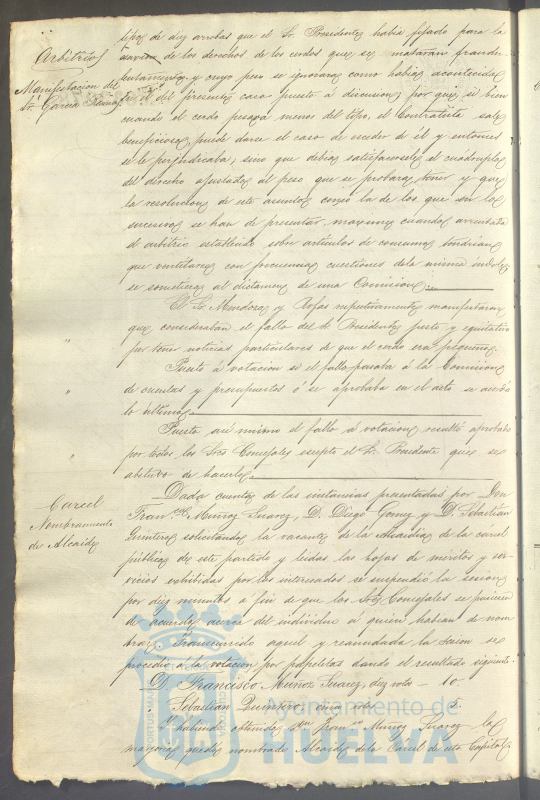 tipo de diez arrobas que el Sr. Presidente habia fijado para la
Arbitrios
de los derechos de los cerdos que se mataran fraudu
Manifestacion del
Sr. Garcia Ramos
lentamente y cuyo peso se ignorara como habia acontecido
en el del presente caso puesto á discusion, por que si bien
cuando el cerdo pesara menos del tipo, el Contratista sale
beneficioso, puede darse el caso de esceder de él y entonces
se le perjudicaba; sino que debia satisfacersele el cuadruplo
del derecho ajustado al peso que se probara tener y que
la resolucion de este asunto como la de los que en lo
sucesivo se han de presentar, maxime cuando arrendado
el arbitrio establecido sobre articulos de consumo tendrian
que ventilarse con frecuencia cuestiones de la misma indole,
se sometieran al dictamen de una Comision.
El Sr. Mendoza y Rofas respectivamente manifestaron
que consideraban el fallo del Sr. Presidente justo y equitativo
"
por tener noticias particulares de que el cerdo era pequeño.
Puesto á votacion si el fallo pasaba á la Comision
"
de cuentas y presupuestos ó se aprobaba en el acto se acordó
lo ultimo.
Puesto asi mismo el fallo á votacion, resultó aprobado
"
por todos los Sres Concejales escepto el Sr. Presidente que se
abstuvo de hacerlo.
Carcel
Nombramiento
de Alcaide
Dada cuenta de las instancias presentadas por Don
Franco. Muñoz Suarez, D. Diego Gomez y D. Sebastian
Quintero solicitando la vacante de la Alcaidia de la carcel
pública de este partido y leidas las hojas de meritos y ser-
vicios exhibidas por los interesados se suspendió la sesion
por diez minutos á fin de que los Sres Concejales se pusieran
de acuerdo acerca del individuo á quien habian de nom
brar. Transcurrido aquel y reanudada la sesion se
procedió á la votacion por papeletas dando el resultado siguiente.
D. Francisco Muñoz Suarez, diez votos — 10
Sebastian Quintero, dos votos — 2
Y habiendo obtenido Don Franco. Muñoz Suarez la
mayoria quedó nombrado Alcaide de la Cárcel de esta Capital
Ayuntamiento de
HUELVA